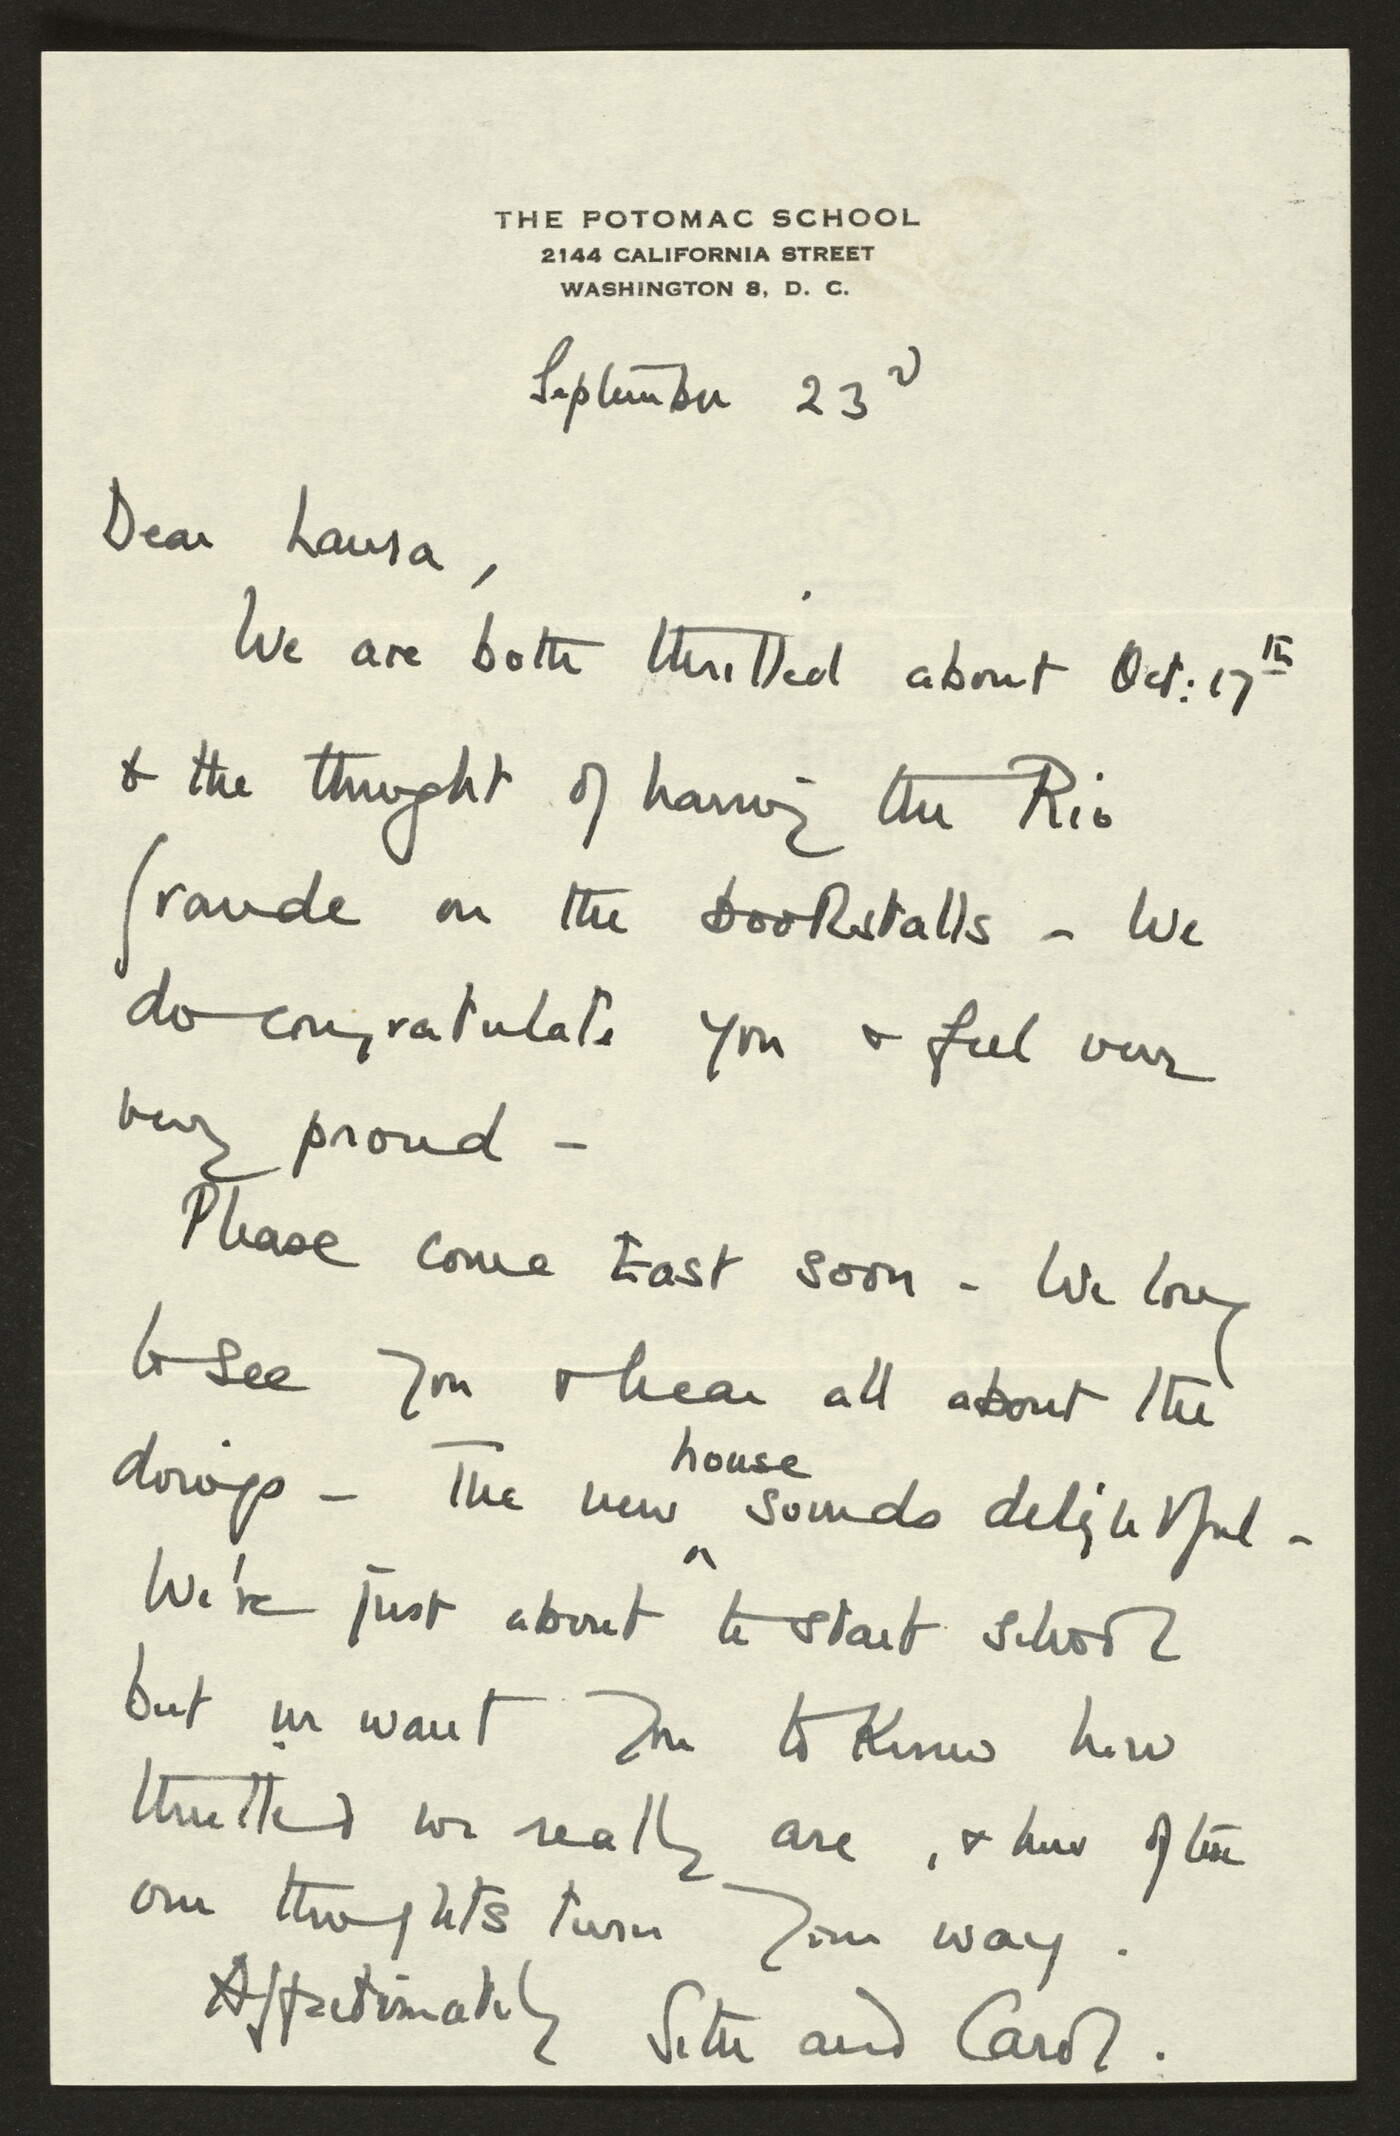 THE POTOMAC SCHOOL
2144 CALIFORNIA STREET
WASHINGTON 8, D. C.
September 23d
Dear Laura,
We are both thrilled about Oct: 17th
& the thought of having the Rio
Grande on the bookstalls - We
do congratulate you & feel very
very proud -
Please come East soon - We long
to see you & hear all about the
doings - The new house sounds delightful -
We're just about to start school
but we want you to know how
thrilled we really are, & how often
our thoughts turn your way.
Affectionately Seth and Carol.